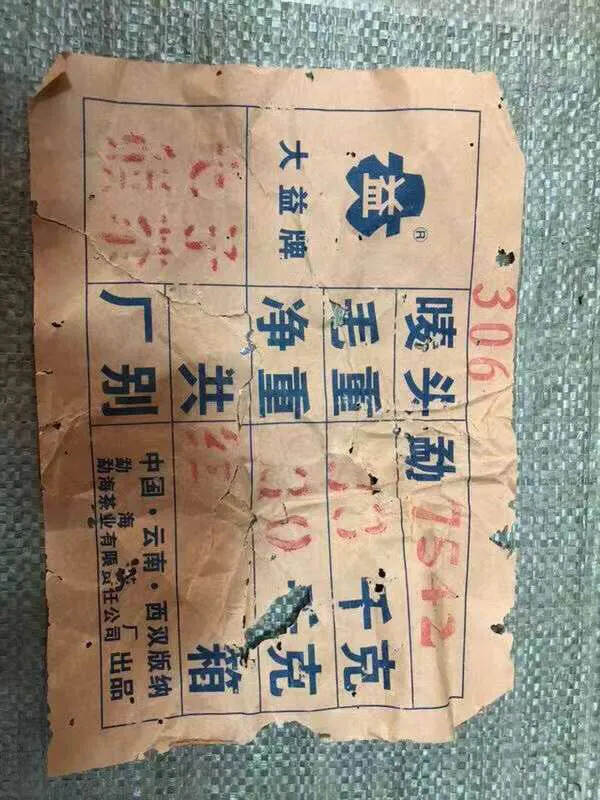 306
益®
大益牌
七子
饼茶
唛头 勐 7542
毛重 千克
净重 30 克
共 箱
厂别
中国·云南·西双版纳
勐海 厂
勐海茶业有限责任公司 出品